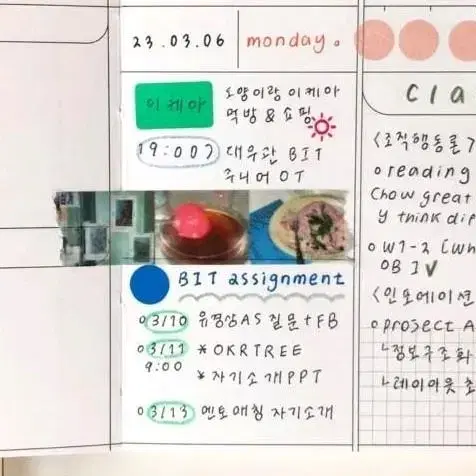 23.03.06
monday.
이케아
도양이랑 이케아
먹방 & 쇼핑
19:00
대우관 BIT
주니어 OT
BIT assignment
3/10 유경상AS 질문+FB
3/11 *OKRTREE
9:00
*자기소개PPT
3/13 멘토매칭 자기소개
cla
<조직행동론
o reading
Chow great
y think dif
o W1-2 [Wh
OB I ✓
<인포메이션
o project A
ㄴ정보구조화
ㄴ레이아웃 초